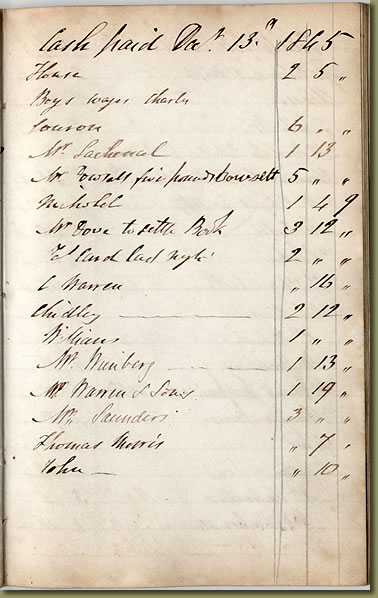 Cash paid Dec.r 13.th 1845
House 2 5 "
Boys wages Charles
Couron 6 " "
Mr Lachenal 1 13
Mr Dowsett five pounds Dowsett 5 " "
Nicholel 1 4 9
Mr Dove to settle Book 3 12 "
Do Card last night 2 " "
C Warren " 16 "
Chidley 2 12 "
Williams 1 " "
Mr Weinberg 1 13 "
Mr Warren & Sons 1 19 "
Mrs Saunders 3 " "
Thomas Morris " 7 "
John " 10 "